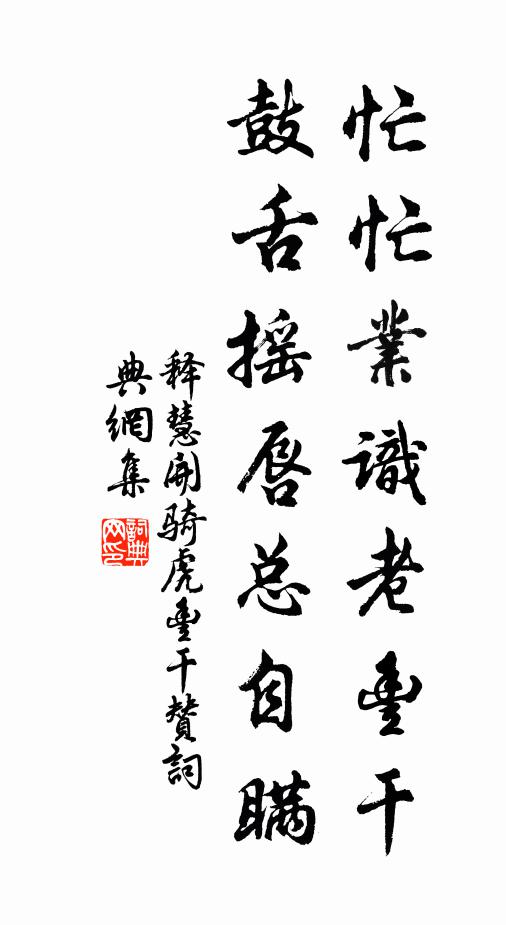 忙忙業識老豐干
鼓舌搖唇总自瞞
釋慧開騎虎豐干贊詞
典網集
詞典网印